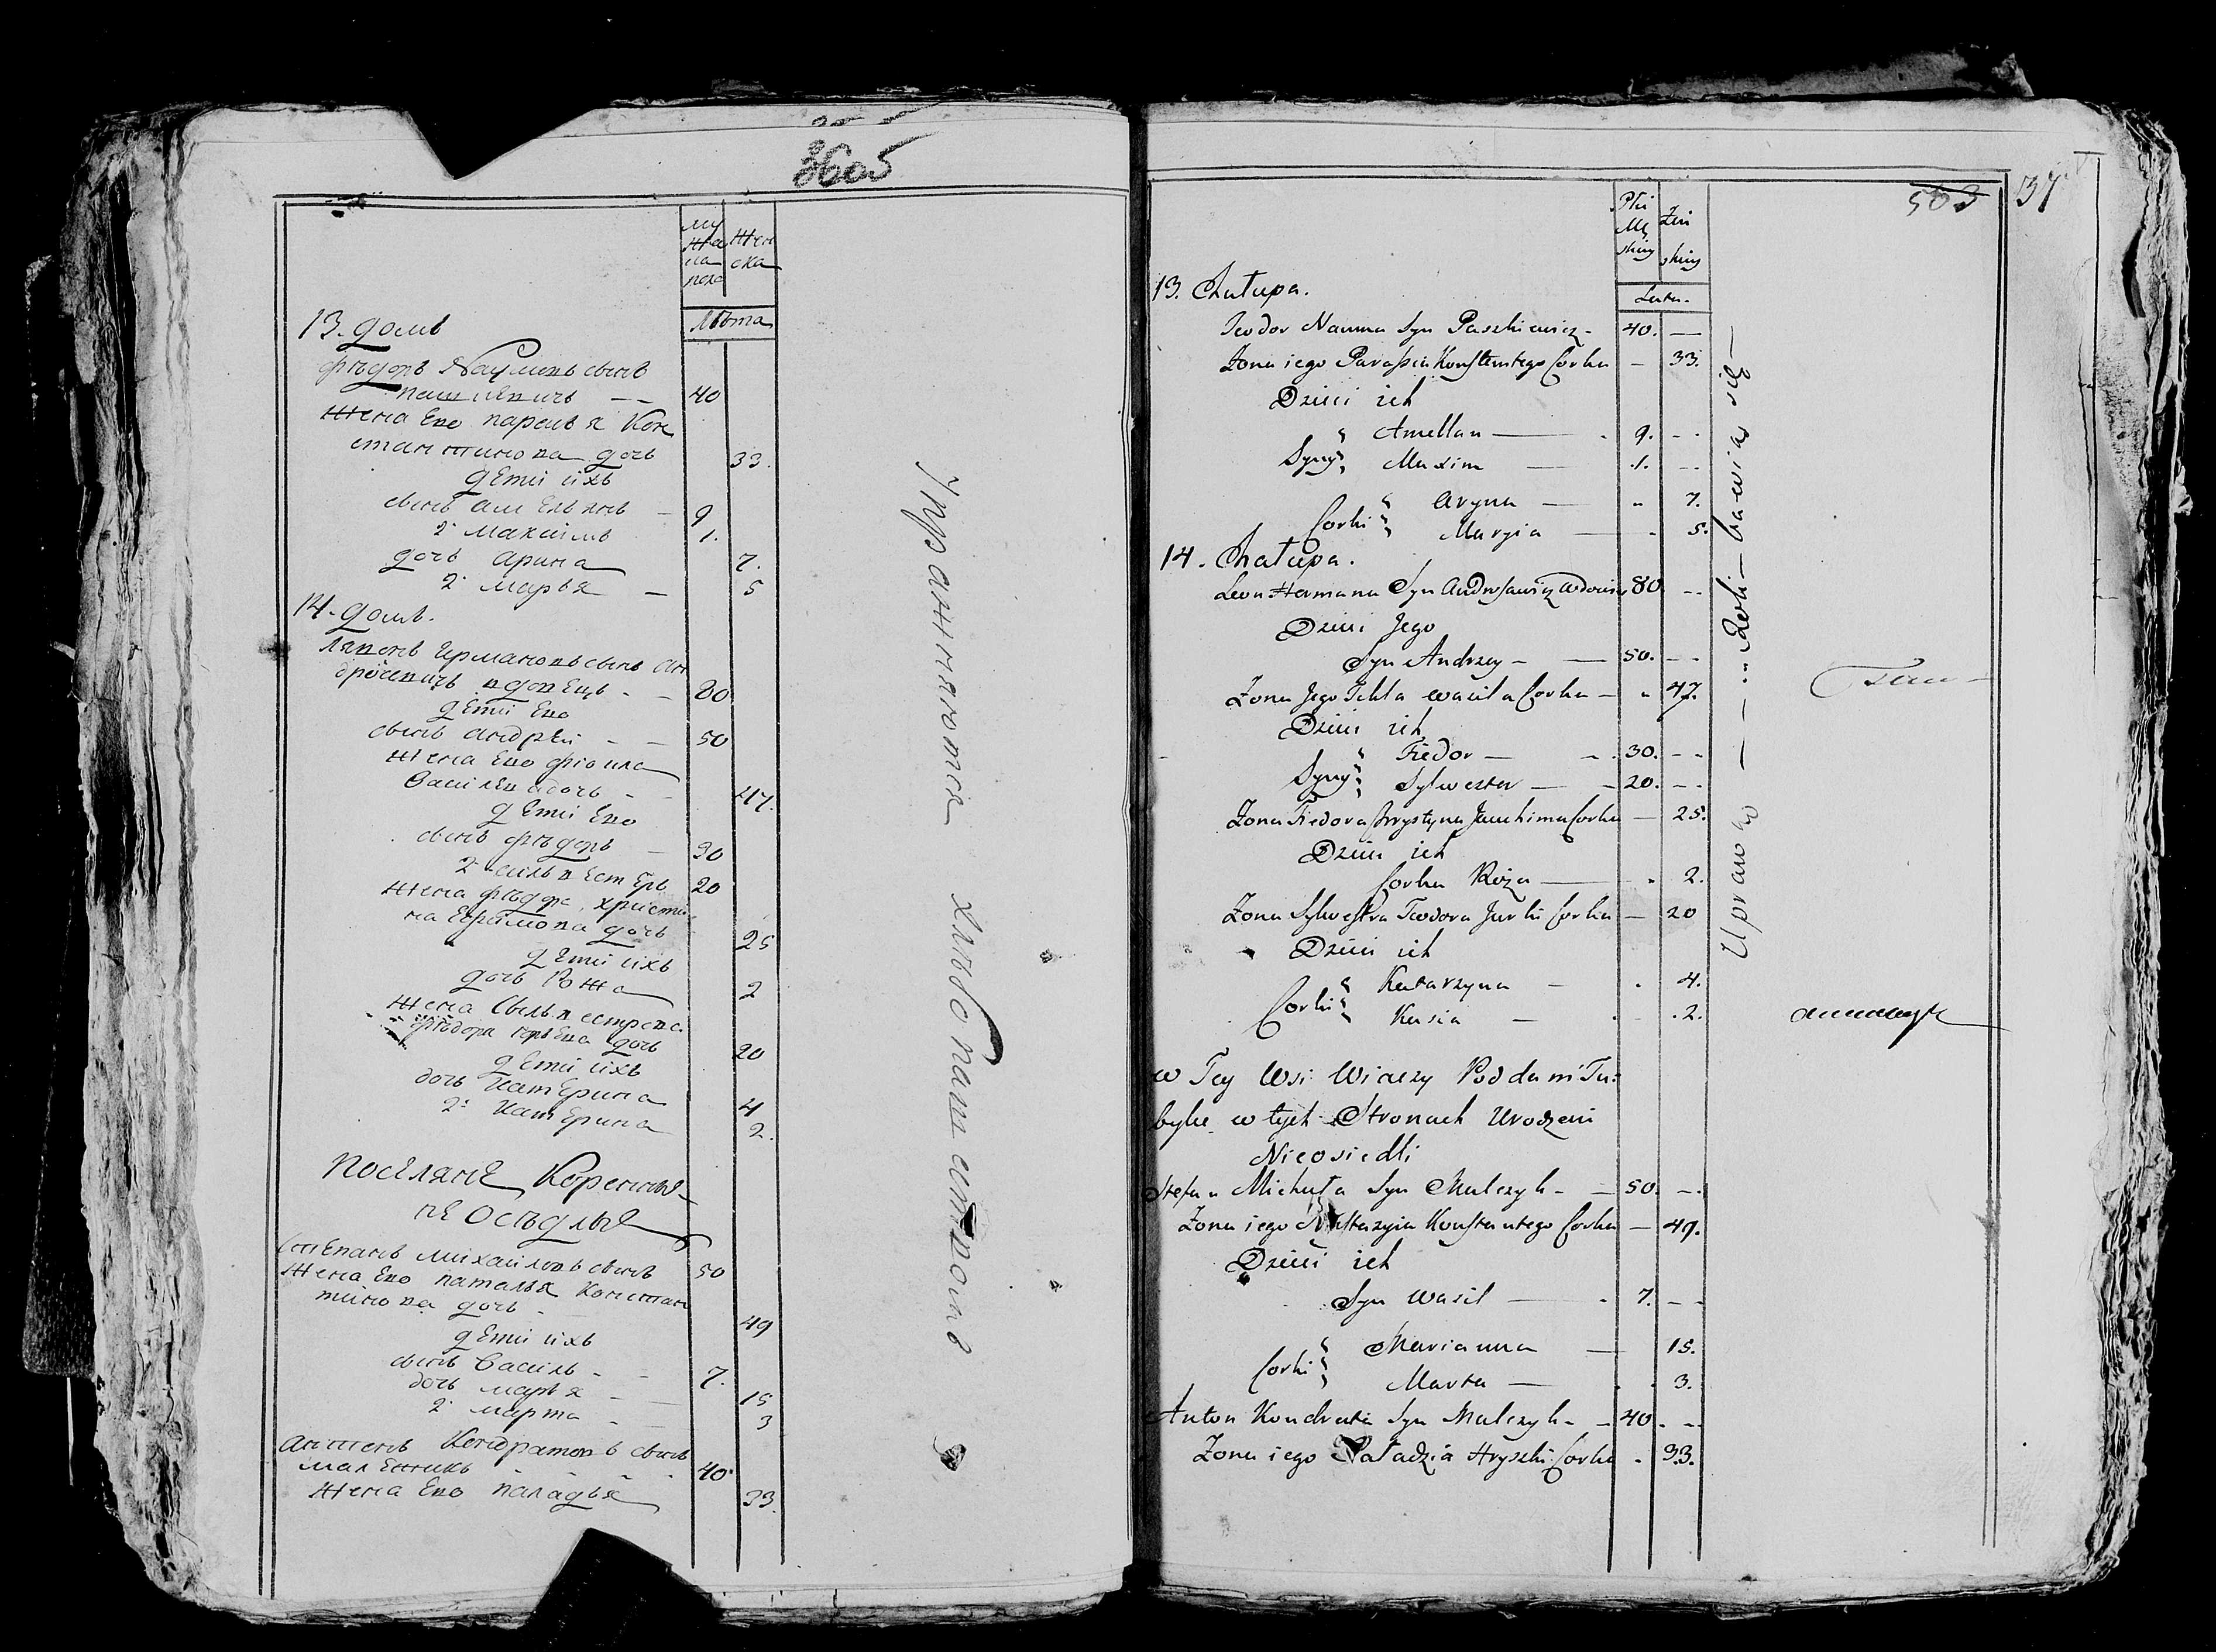 3605
му
жеска
пола
Жен
ска
Лѣта
13. домъ
Фѣдоръ Наумовъ сынъ
пашкевичъ — — 40
Жена Ево парасья Кон
стантинова дочь 33.
дети ихъ
сынъ амельянъ — 9
2. Максимъ 1.
дочь Арина 7.
2. Марья — 5
14. домъ.
Лявонъ Ермановъ сынъ Ан
дросевичъ вдовецъ - — 80
дети Ево
сынъ андрей - — 50
Жена Ево фіокла
Васильева дочь - 47.
дети Ево
сынъ фѣдоръ — 30
2. сильвестеръ 20
Жена фѣдора, христи
на Ефимова дочь 25
дети ихъ
дочь Рожа 2
Жена Сильвестрова
фѣдора юрьева дочь 20
дети ихъ
дочь Катерина 4
2. Катерина 2.
поселяне Коренные
не оседлые
Степанъ Михайловъ сынъ 50
Жена Ево наталья Констан
тинова дочь - 49
дети ихъ
сынъ Василь - 7.
дочь марья — 15
2. марта - 3
Антонъ Кондратовъ сынъ
малежикъ 40
Жена Ево паладья 33.
Упражняются хлѣбопашествомъ
503
37
Płci
Mę
skiey
Żeń
skiey
Lata.
13. Chałupa.
Teodor Nauma Syn Paszkiewicz - 40. —
Zona iego Parassia Konstantego Corka — 33.
Dzieci ich
Syny Amellan — 9. - -
Maxim — 1. - -
Corki Aryna — " 7.
Maryia — - 5.
14. Chałupa.
Leon Hermana Syn Androsawicz wdowiec 80 - -
Dzieci Jego
Syn Andrzey - — 50. - -
Zona Jego Tekla wasila Corka — " 47.
Dzieci ich
Syny Fiedor — 30. - -
Sylwester — 20. - -
Zona Fiedora Krystyna Jauchima Corka — 25.
Dzieci ich
Corka Róża — - 2.
Zona Sylwestra Teodora Jurki Corka — 20
Dzieci ich
Corki Katarzyna — . 4.
Kasia — . 2.
w Tey Wsi Wiaczy Poddani Tu=
bylce w tych Stronach Urodzeni
Nieosiedli
Stefan Michała Syn Malczyk - — 50. - -
Zona iego Nastazyia Konstantego Corka — 49.
Dzieci ich
Syn Wasil — 7. - -
Corki Marianna — 15.
Marta — . 3.
Anton Kondrata Syn Malczyk - — 40. - -
Zona iego Paładzia Hryszki Corka . 33.
Uprawą — — — Roli — bawias się —